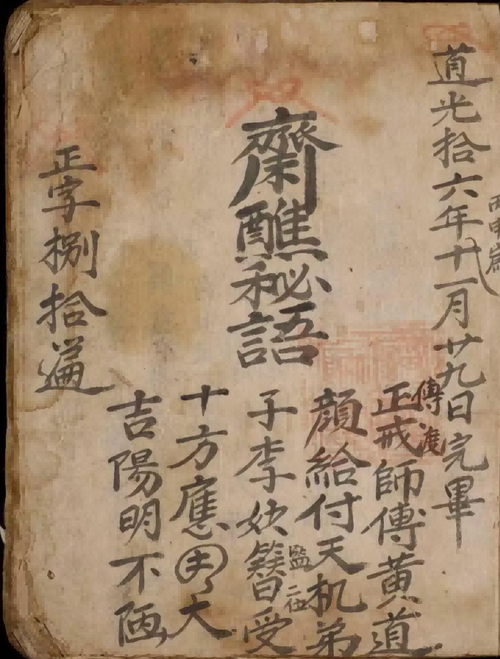 道光拾六年十一月廿九日完畢
丙申
傳渡
正戒師傅黃道
顏給付天机弟
齋醮秘語
子李妙簪受
二位
十方應大
吉陽明不陋
正字捌拾